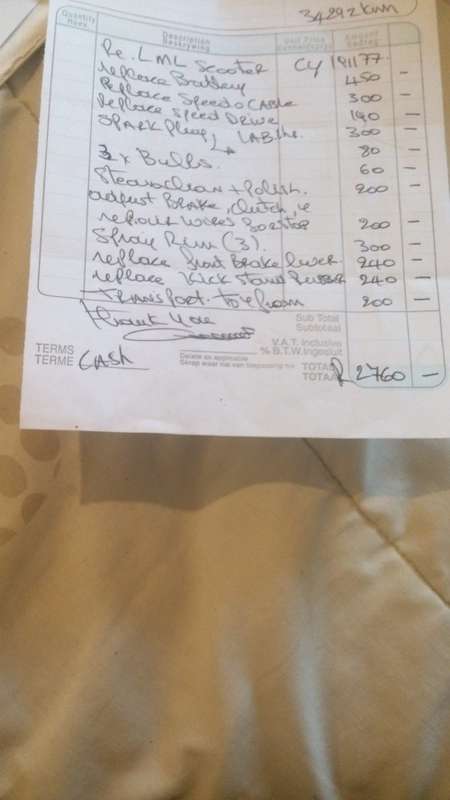 34292km
Quantity Description Unit Price Amount
Hoev. Beskrywing Eenheidsprys Bedrag
Re. LML Scooter CY 191177
replace Battery 450 -
Replace Speedo Cable 300 -
replace Speed Drive 190 -
Spark Plug, LAB. 300 -
80 -
3 x Bulbs. 60 -
Steamclean + Polish. 200 -
adjust Brake, Clutch,
wires 200 -
Rim (3). 300 -
replace front Brake lever 240 -
replace Kick Stand Rubber 240 -
Transport. To & from 200 -
thank you
Sub Total
Subtotaal
V.A.T. Inclusive
% B.T.W. Ingesluit
TERMS
TERME CASH
Delete as applicable
Skrap waar nie van toepassing nie
TOTAL
TOTAAL R 2760 -